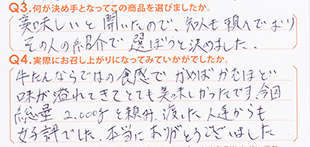 Q3.何が決め手となってこの商品を選びましたか。
美味しいと聞いたので、知人も頼んでおり
その人の紹介で選ぼうと決めました。
Q4.実際にお召し上がりになってみていかがでしたか。
牛たんならではの食感でかめばかむほど
味が溢れてきてとても美味しかったです。今回
総量2,000gを頼み、渡した人達からも
好評でした。本当にありがとうございました